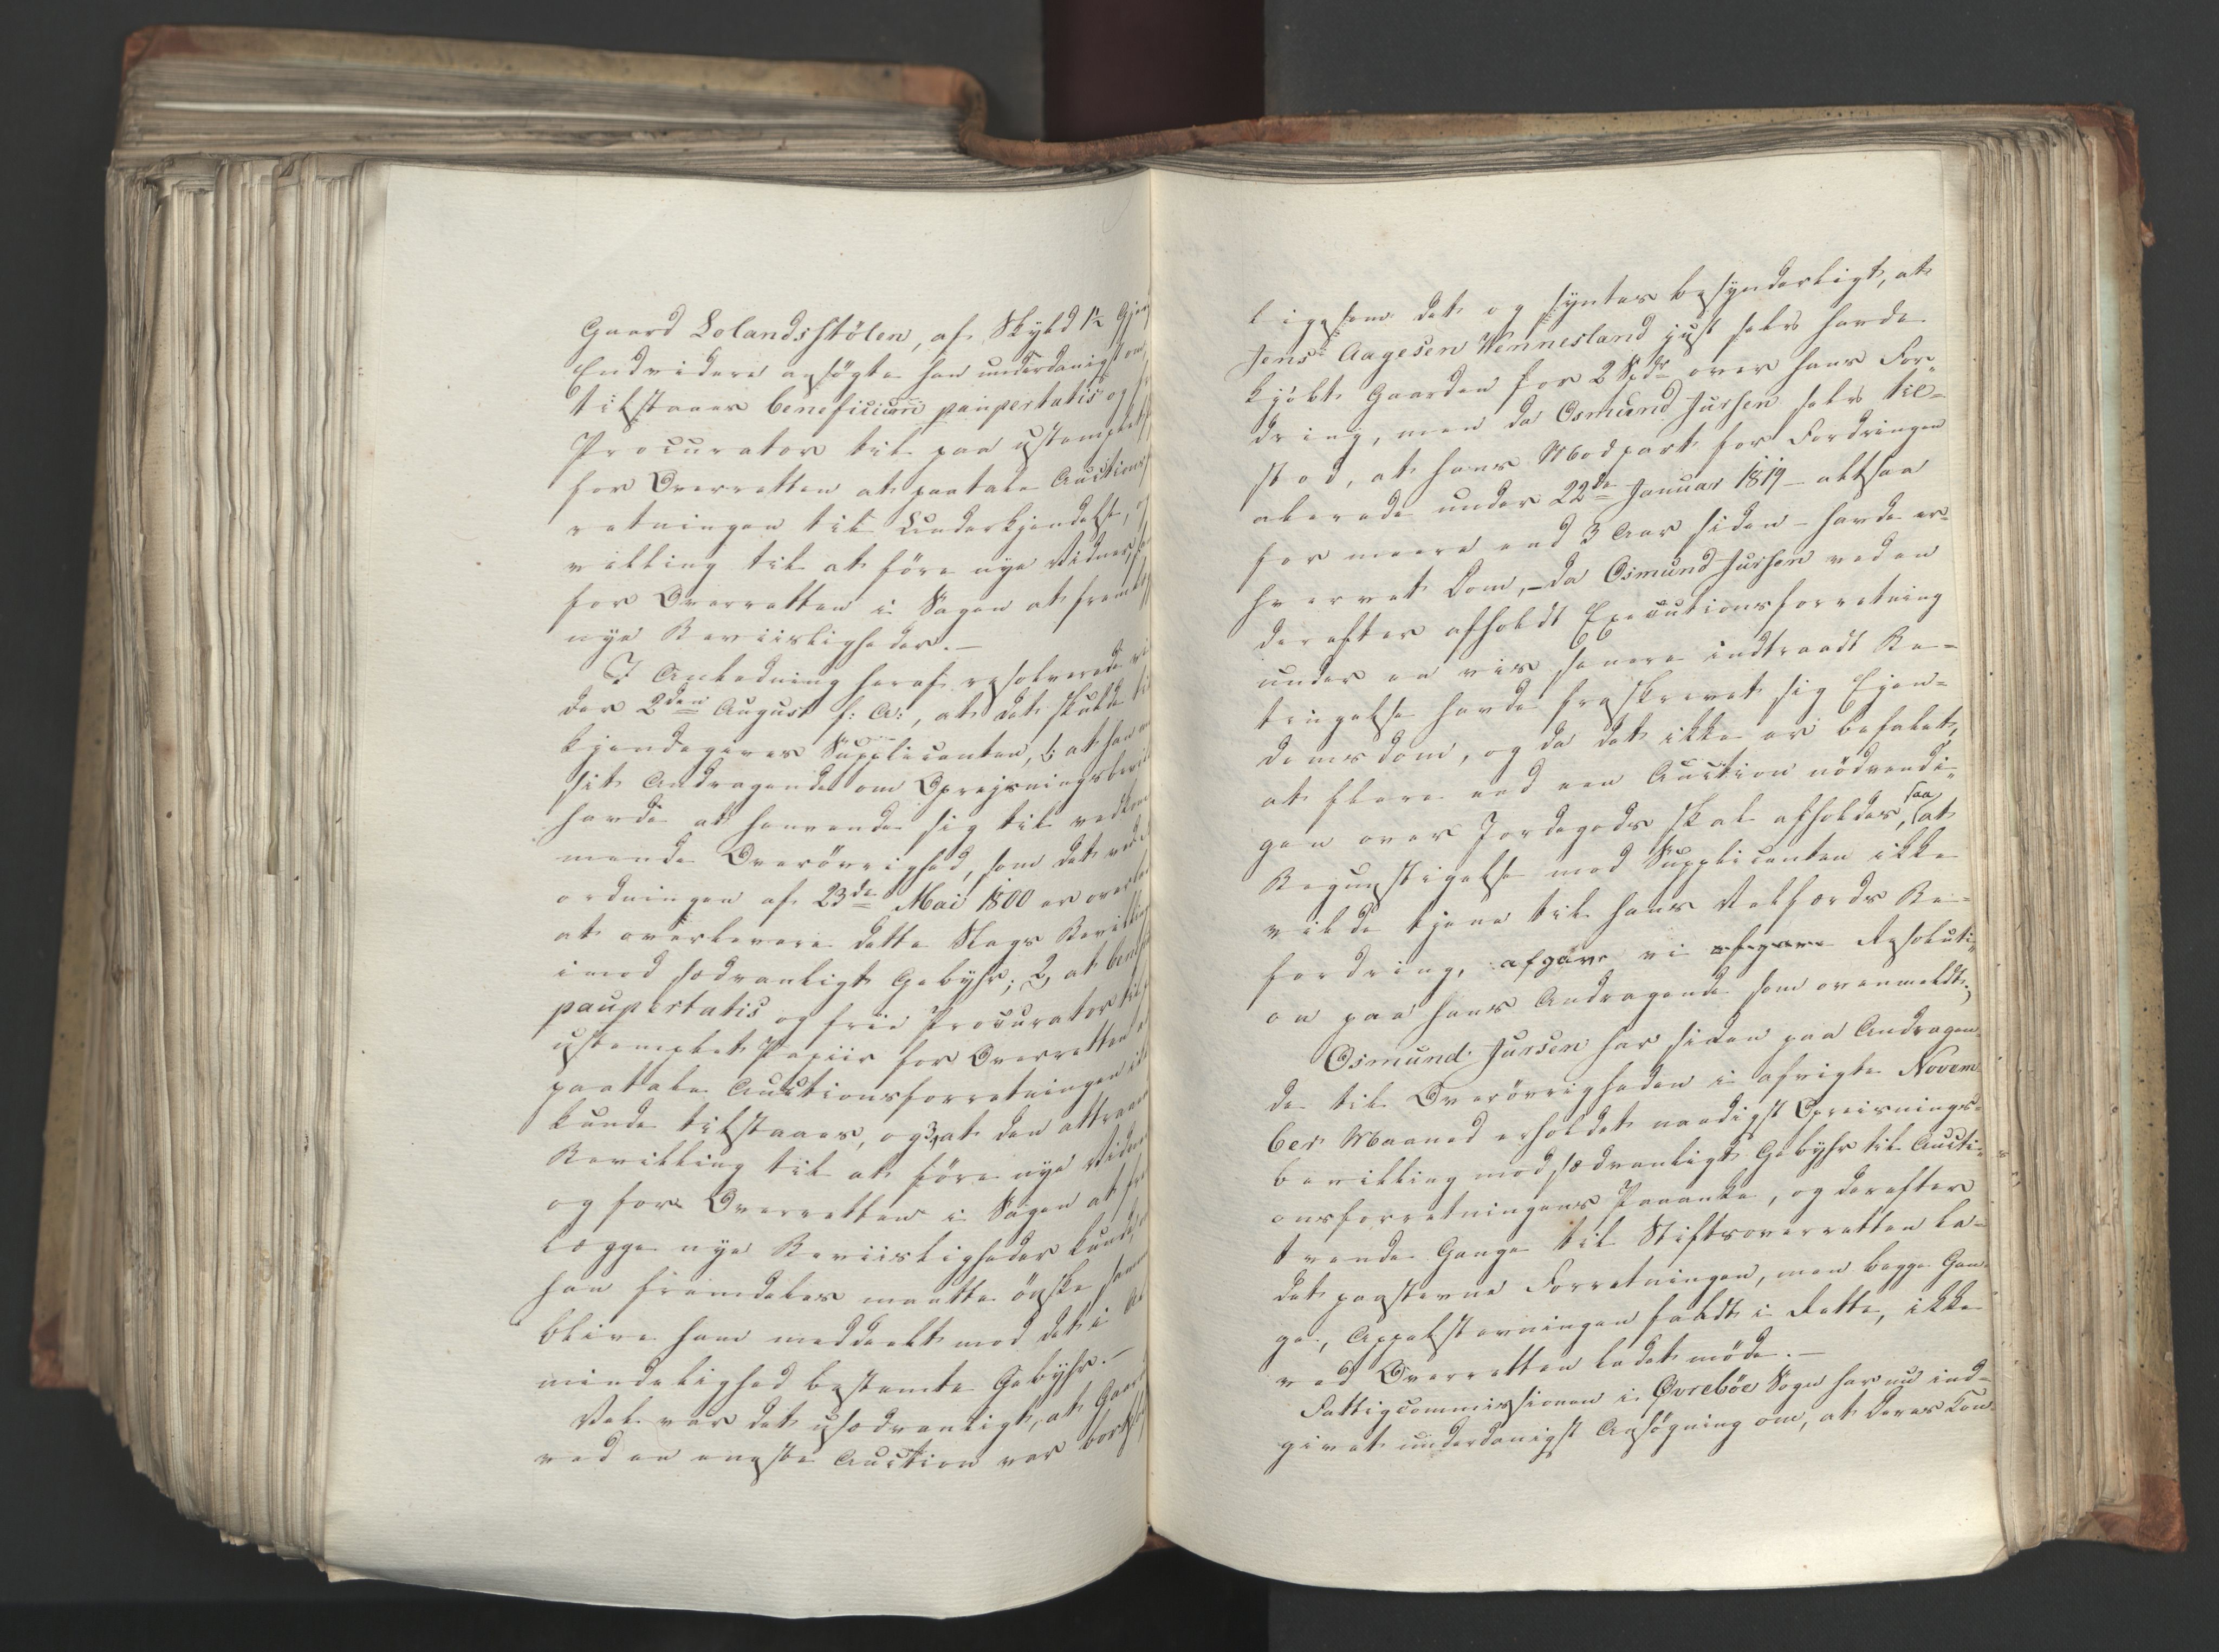 Gaard Lolandsstölen, af Skyld 1½
Endvidere ansögte han underdanigst om,
tilstaaes beneficium paupertatis og
Procurator til paa ustemplet
for Overretten at paatale Auctions
retningen til Underkjendelse,
villing til at före nye Vidner,
for Overretten i Sagen at
nye Beviisligheder. —
I Anledning heraf resolverede vi
der 2den August f: A:, at det skulde til
kjendegives Supplicanten, 1, at han
sit Andragende om Oprejsnings
havde at henvende sig til vedkom
mende Overövrighed, som det ved
ordningen af 23de Mai 1800 er
at överlevere dette Slags
imod sædvanligt Gebyhr; 2, at
paupertatis og frie Procurator til
ustemplet Papiir for Overretten
paatale Auctionsforretningen
kunde tilstaaes, og 3, at den
Bevilling til at före nye
og for Overretten i Sagen at
lægge nye Beviisligheder
han fremdeles maatte önske
blive ham meddeelt mod det i
mindelighed bestemte Gebyhr. —
Vel var det usædvanligt, at
ved en eneste Auction var
ligesom det og syntes besynderligt, at
Jens Aagesen Vennesland just selv havde
kjöbt Gaarden for 2 Spdr over hans For„
dring, men da Osmund Jursen selv til„
stod, at hans Modpart for Fordringen
allerede under 22de Januar 1819 – altsaa
for meere end 3 Aar siden – havde er„
hvervet Dom, – da Osmund Jursen ved en
derefter afholdt Executionsforretning
under en vis senere indtraadt Be„
tingelse havde fraskrevet sig Ejen„
domsdom, og da det ikke er befalet,
at flere end een Auction nödvendi„
gen over Jordegods skal afholdes, saa at
Begunstigelse mod Supplicanten ikke
vilde tjene til hans Velfærds Be„
fordring, afgave vi afgave Resoluti„
on paa hans Andragende som ovenmeldt.
Osmund Jursen har siden paa Andragen„
de til Overövrigheden i afvigte Novem„
ber Maaned erholdet naadigst Opreisnings„
bevilling mod sædvanligt Gebyhr til Aucti„
onsforretningens Paaanke, og derefter
tvende Gange til Stiftsoverretten la„
det paastevne Forretningen, men begge Gan„
ge, Appelstevningen faldt i Rette, ikke
ved Overretten ladet möde. —
Fattigcommissionen i Øvrebøe Sogn har nu ind„
givet underdanigst Ansögning om, at deres Con„